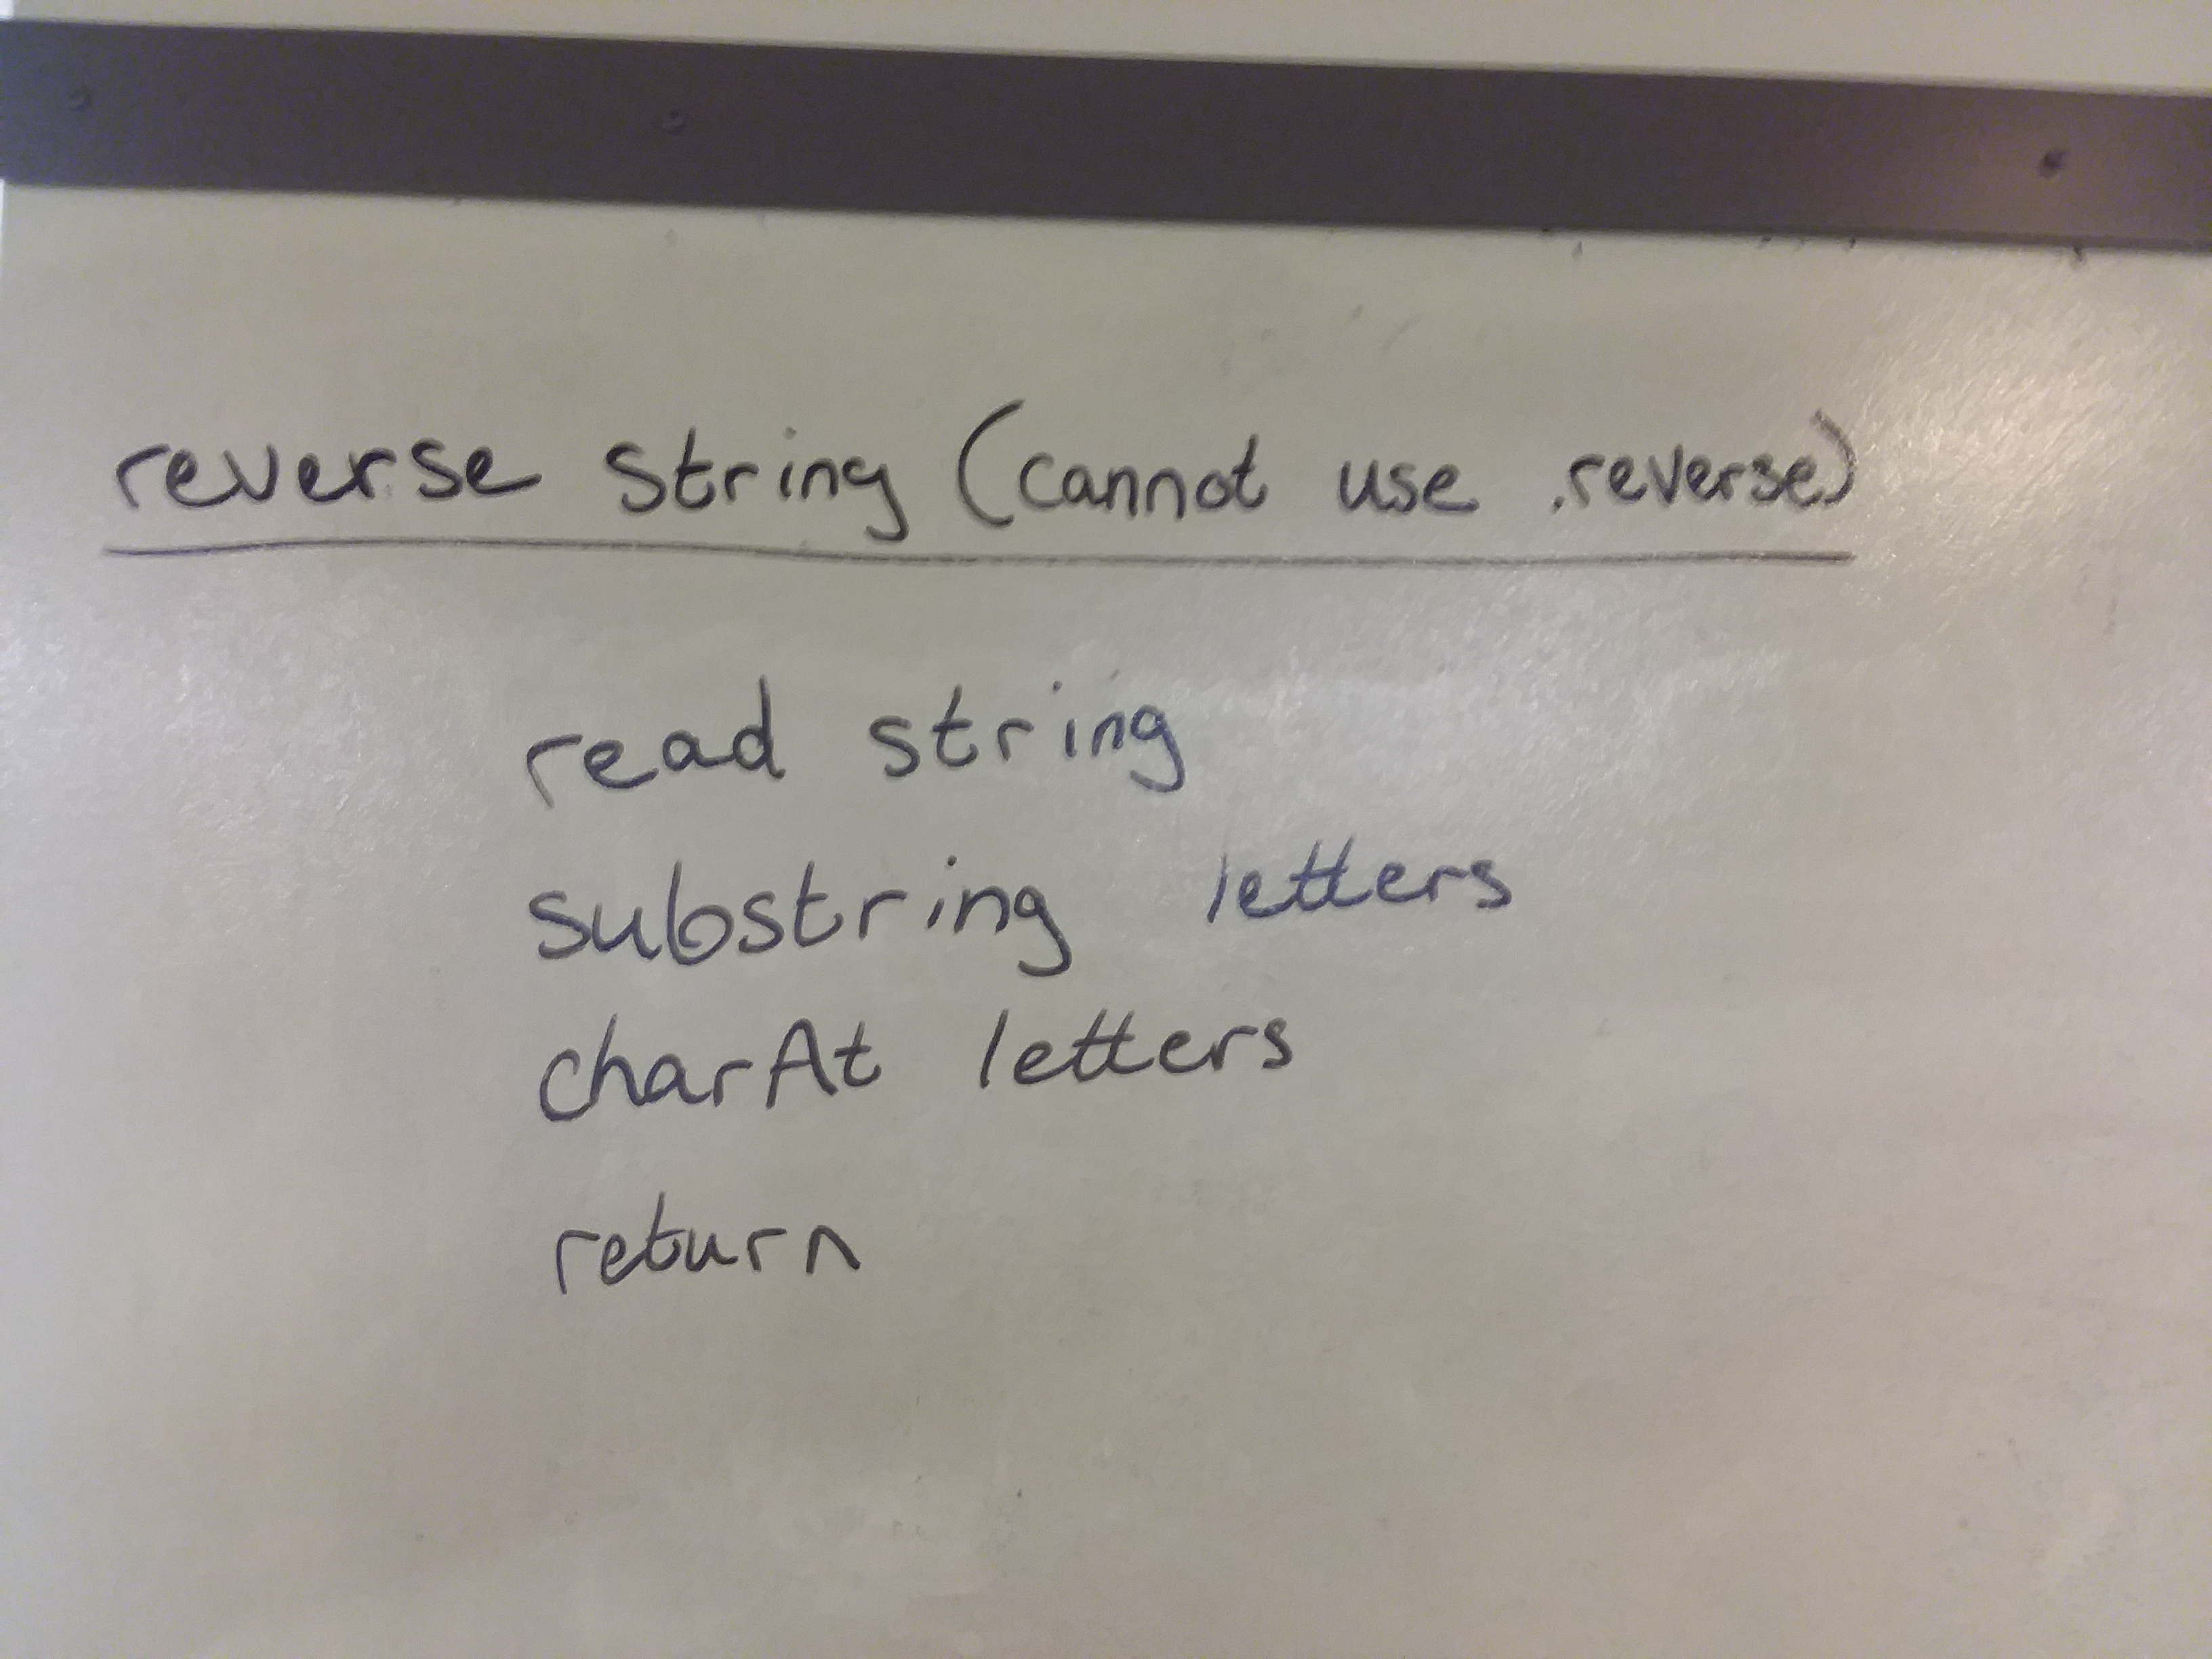 reverse string (cannot use .reverse)
read string
substring letters
charAt letters
return